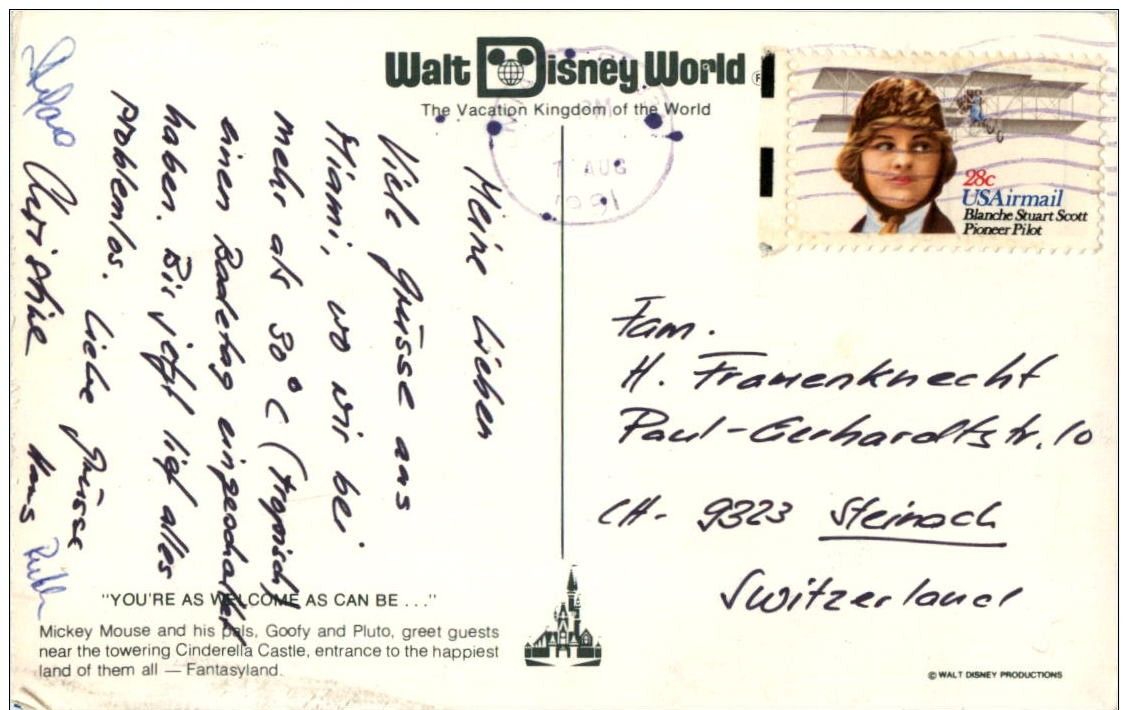 Walt Disney World ®
The Vacation Kingdom of the World
7 AUG
28c
USAirmail
Blanche Stuart Scott
Pioneer Pilot
Meine Lieben
Viele Grüsse aus
Miami, wo wir bei
mehr als 30°C (tropisch)
einen Badetag eingeschaltet
haben. Bis jetzt lief alles
problemlos. Liebe Grüsse
Christine Hans
Ruth
Fam.
H. Frauenknecht
Paul-Gerhardtstr. 10
CH- 9323 Steinach
Switzerland
"YOU'RE AS WELCOME AS CAN BE . . ."
Mickey Mouse and his pals, Goofy and Pluto, greet guests
near the towering Cinderella Castle, entrance to the happiest
land of them all — Fantasyland.
© WALT DISNEY PRODUCTIONS